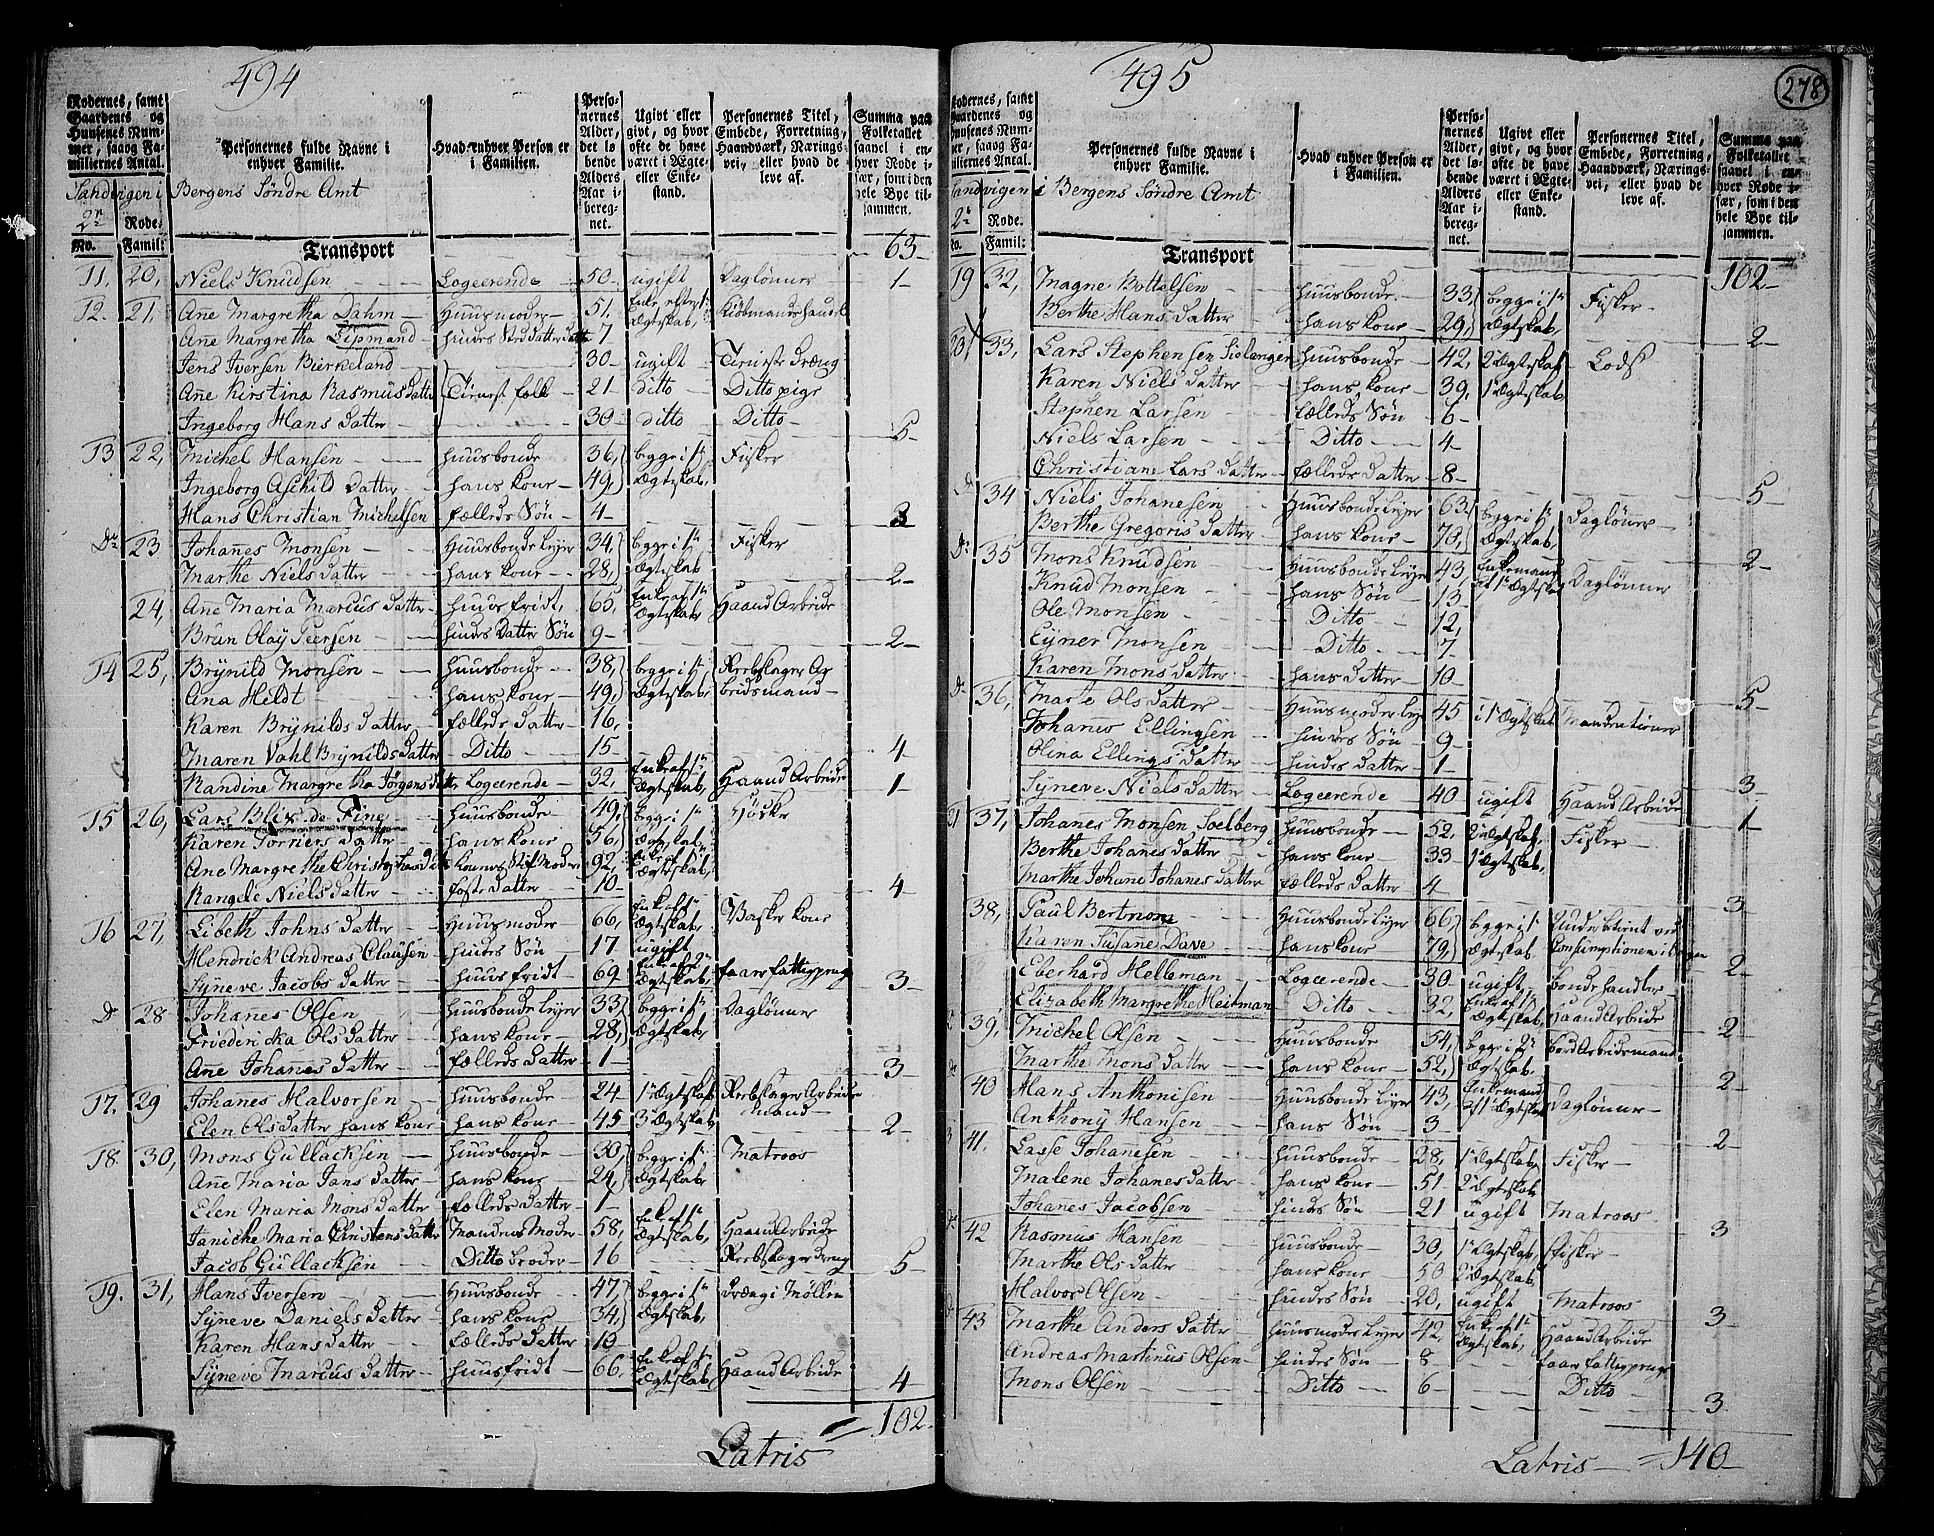 494
Rodernes, samt Gaardenes og Huusenes Nummer, saavog Familiernes Antal.
Personernes fulde Navne i enhver Familie.
Hvad enhver Person er i Familien.
Personernes Alder, det løbende Alders Aar iberegnet.
Ugivt eller givt, og hvor ofte de have været i Ægte- eller Enkestand.
Personernes Titel, Embede, Forretning, Haandværk, Næringsvei, eller hvad de leve af.
Summa paa Folketallet saavel i enhver Rode især, som i den hele Bye tilsammen.
Sandvigen i Bergens Søndre Amt
2n Rode:
No. Famil: Transport 63
11. 20, Niels Knudsen Logeerende 50 ugift Dagløнner 1
12. 21, Ane Margretha Dahm Huusmoder 51. Enke efter 1te Ægtskab, Kiøbmandshandel
Ane Margretha Lipmand hindes Sted Datter Datter 7
Jens Iversen Bierkeland 30 ugift Tienste Dræng
Ane Kirstina Rasmus Datter Tienest folk 21 Ditto Ditto pige
Ingeborg Hans Datter 30 ditto Ditto 5
13 22, Michel Hansen huusbonde 36, begge i 1te Fisker
Ingeborg Aschild Datter hans kone 49, Ægtskab,
Hans Christian Michelsen fælleds Søn 4 3
Do 23 Johanes Monsen Huusbonde Lejer 34, begge i 1te Fisker
Marthe Niels Datter hans kone 28, Ægtskab 2
24, Ane Maria Marcus Datter huusfridt, 65, Enke af 1te Ægtskab, Haand Arbeide
Brun Olay Peersen hindes Datter Søn 9 2
14 25, Brynild Monsen huusbonde 38, begge i 1te Reebslager Ar
Ana Hildt hans kone 49, Ægtskab, beidsmand
Karen Brynilds Datter fælleds Datter 16,
Maren Vahl Brynilds Datter Ditto 15 4
Randine Margretha Jørgens datter Logeerende 32, Enke af 1te Ægtskab, Haand Arbeide 1
15 26, Lars Blix de Fine huusbonde 49, begge i 1te Høcker
Karen Torriers Datter hans kone 56, Ægtskab,
Ane Margrethe Konens Stifmoder 92, Ægtskab,
Rangele Niels Datter foster Datter 10 4
16 27, Lisbeth Johns Datter Huusmoder 66, Ægtskab, Vasker kone
Hendrick Andreas Clausen hindes Søn 17 ugift
Syneve Jacobs Datter huusfridt 69 Ægtskab, faar fattigpenge 3
Do 28 Johanes Olsen huusbonde Lejer 33 begge i 1te Dagløнner
Friedericka Ols Datter hans kone 28, Ægtskab,
Ane Johanes Datter fælleds Datter 1 3
17. 29 Johanes Halvorsen huusbonde 24 1te Ægtskab Reebslager Arbeide
Elen Ols Datter hans kone hans kone 45 3 Ægtskab, mand 2
18. 30, Mons Gullacksen huusbonde 30, begge i 1te Matroos
Ane Maria Jans Datter hans kone 24, Ægtskab
Elen Maria Mons Datter fælleds Datter 1
Janiche Maria Cristens Datter Mandens Moder 58, Enke af 1te Ægtskab, Haand Arbeide
Jacob Gullacksen Ditto broder 16 Reebslager dreng 5
19. 31, Hans Iversen Huusbonde 47, begge i 1te Dreng i Møllen
Syneve Daniels Datter hans kone 34, Ægtskab,
Karen Hans Datter fælleds Datter 10
Syneve Marcus Datter huusfridt 66, Enke af 1te Ægtskab, Haand Arbeide 4
Latris = 102
495
278
Rodernes, samt Gaardenes og Huusenes Nummer, saavog Familiernes Antal.
Personernes fulde Navne i enhver Familie.
Hvad enhver Person er i Familien.
Personernes Alder, det løbende Alders Aar iberegnet.
Ugivt eller givt, og hvor ofte de have været i Ægte- eller Enkestand.
Personernes Titel, Embede, Forretning, Haandværk, Næringsvei, eller hvad de leve af.
Summa paa Folketallet saavel i enhver Rode især, som i den hele Bye tilsammen.
Sandvigen i Bergens Søndre Amt
2n Rode.
No. Famil: Transport 102
19 32, Magne Bottelsen huusbonde 33, begge i 1te Fisker
Berthe Hans Datter hans kone 29, Ægtskab, 2
20 33, Lars Stephensen Sielanger huusbonde 42, 2 Ægtskab Lods
Karen Niels Datter hans kone 39, 1te Ægtskab
Stephen Larsen fælleds Søn 6
Niels Larsen Ditto 4
Christiane Lars Datter fælleds Datter 8 5
Do 34 Niels Johanesen huusbonde Lejer 63 begge i 1te Dagløнner
Berthe Gregoris Datter hans kone 70, Ægtskab, 2
Do 35 Mons Knudsen huusbonde Lejer 43, Enkemand af 1te Ægtskab Dagløнner
Knud Monsen hans Søn 13
Ole Monsen Ditto 12,
Eyner Monsen Ditto 7
Karen Mons Datter hans Datter 10 5
Do 36, Marte Ols Datter huusmoder Lejer 45 i 1te Ægtskab
Johanes Ellingsen hindes Søn 9
Olina Ellings Datter hindes Datter 1 3
Syneve Niels Datter Logeerende 40 ugift Haand Arbeide 1
21 37, Johanes Monsen Soelberg huusbonde 52, 2 Ægtskab, Fisker
Berthe Johanes Datter hans kone 33 1te Ægtskab,
Marthe Johane Johanes Datter fælleds Datter 4 3
38, Paul Bertnom huusbonde Lejer 66, begge i 1te Under betient ved
Karen Susane Dave hans kone 79, Ægtskab Consumptionen i bergen 2
Eberhard Helleman Logeerende 30 ugift, bonde handler
Elizabeth Margrethe Heitman Ditto 32, Ægtskab, Haand Arbeide 2
39, Michel Olsen huusbonde 54, begge i 2 bord Arbeidsmand
Marthe Mons Datter hans kone 52, Ægtskab, 2
Do 40 Hans Anthonisen huusbonde Lejer 43, Enkemand af 1te Ægtskab Dagløнner
Anthony Hansen hans Søn 3 2
41. Lasse Johanesen huusbonde 28, 1te Ægtskab, Fisker
Malene Johanes Datter hans kone 51 2 Ægtskab
Johanes Jacobsen hindes Søn 21 ugift Matroos 3
Do 42 Rasmus Hansen huusbonde 30, 1te Ægtskab, Fisker
Marthe Ols Datter hans kone 50 2 Ægtskab,
Halvor Olsen hindes Søn 20, ugift Matroos 3
Do 43 Marthe Anders Datter huusmoder Lejer 42, Enke af 1te Ægtskab, Haand Arbeide
Andreas Martinus Olsen hindes Søn 8 faar fattigpenge
Mons Olsen Ditto 6 Ditto 3
Latris = 140